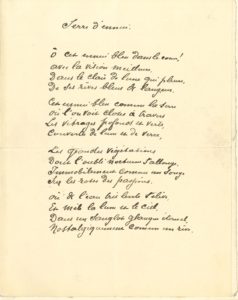 Serre d'ennui.
Ô cet ennui bleu dans le cœur!
Avec la vision meilleure,
Dans le clair de lune qui pleure,
De mes rêves bleus de langueur!
Cet ennui bleu comme la serre
Où l'on voit closes à travers
Les vitrages profonds et verts,
Couvertes de lune et de verre,
Les grandes végétations
Dont l'oubli nocturne s'allonge,
Immobilement comme un songe
Sur les roses des passions;
Où de l'eau très lente s'élève
En mêlant la lune et le ciel,
Dans un sanglot glauque éternel,
Monotonement comme un rêve.